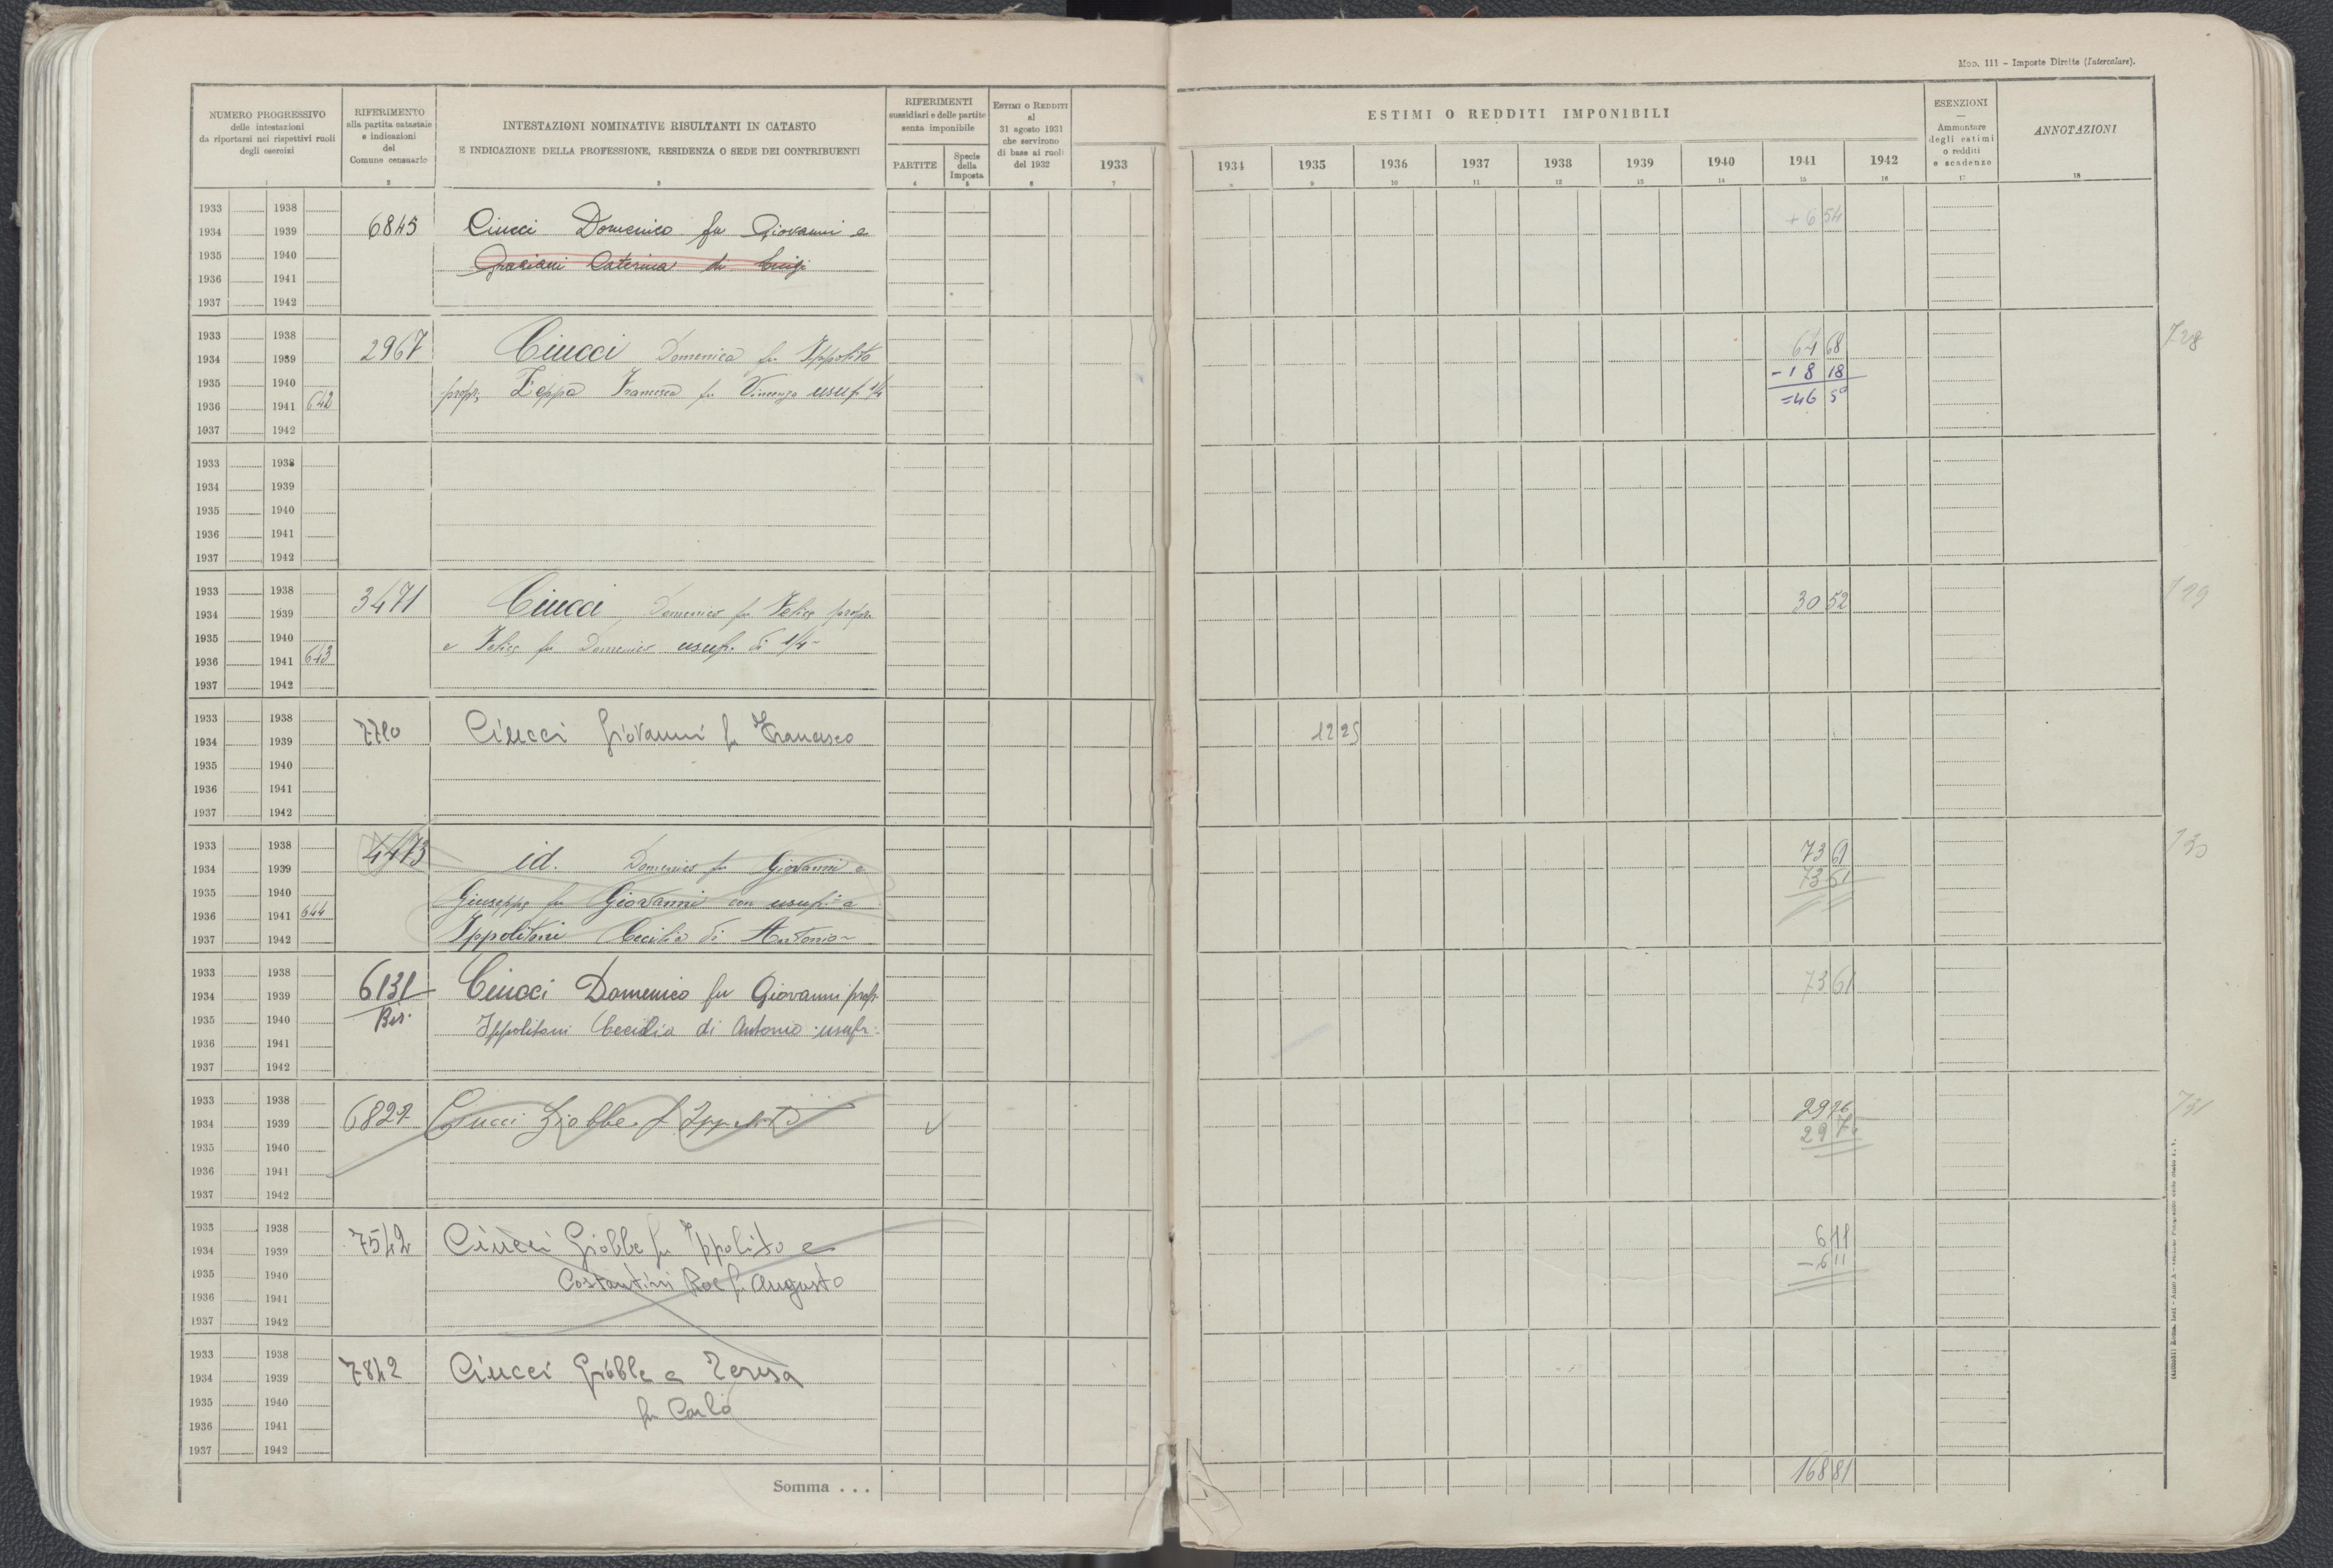 Mod. 111 - Imposte Dirette (Intercalare).
NUMERO PROGRESSIVO
delle intestazioni
da riportarsi nei rispettivi ruoli
degli esercizi
RIFERIMENTO
alla partita catastale
e indicazioni
del
Comune censuario
INTESTAZIONI NOMINATIVE RISULTANTI IN CATASTO
E INDICAZIONE DELLA PROFESSIONE, RESIDENZA O SEDE DEI CONTRIBUENTI
RIFERIMENTI
sussidiari e delle partite
senza imponibile
PARTITE
Specie
della
Imposta
ESTIMI O REDDITI
al
31 agosto 1931
che servirono
di base ai ruoli
del 1932
ESTIMI O REDDITI IMPONIBILI
1933 1934 1935 1936 1937 1938 1939 1940 1941 1942
ESENZIONI
—
Ammontare
degli estimi
o redditi
e scadenze
ANNOTAZIONI
1 2 3 4 5 6 7 8 9 10 11 12 13 14 15 16 17 18
1933 1938
1934 1939 6845 Ciucci Domenico fu Giovanni e + 6 54
1935 1940 Graziani Caterina di Luigi
1936 1941
1937 1942
1933 1938 728
1934 1939 2967 Ciucci Domenica fu Ippolito 64 68
1935 1940 - 18 18
1936 1941 642 propr; Zeppa Francesca fu Vincenzo usuf. 1/4 = 46 50
1937 1942
1933 1938
1934 1939
1935 1940
1936 1941
1937 1942
1933 1938
1934 1939 3471 Ciucci Domenico fu Felice propr. 30 52 729
1935 1940
1936 1941 643 e Felice fu Domenico usuf. di 1/4
1937 1942
1933 1938
1934 1939 7710 Ciucci Giovanni fu Francesco 12 25
1935 1940
1936 1941
1937 1942
1933 1938 4473 73 61 730
1934 1939 id. Domenico fu Giovanni e 73 61
1935 1940 Giuseppe fu Giovanni con usuf. a
1936 1941 644
1937 1942 Ippolitani Cecilia di Antonio
1933 1938
1934 1939 6131 Ciucci Domenico fu Giovanni propr. 73 61
1935 1940 Bis. Ippolitani Cecilia di Antonio usufr.
1936 1941
1937 1942
1933 1938 29 76 731
1934 1939 6827 Ciucci Giobbe f Ippolito 29 76
1935 1940
1936 1941
1937 1942
1933 1938
1934 1939 7542 Ciucci Giobbe fu Ippolito e 6 11
1935 1940 Costantini fu Augusto - 6 11
1936 1941
1937 1942
1933 1938
1934 1939 7842 Ciucci Giobbe e Teresa
1935 1940 fu Carlo
1936 1941
1937 1942
Somma . . . 168 81